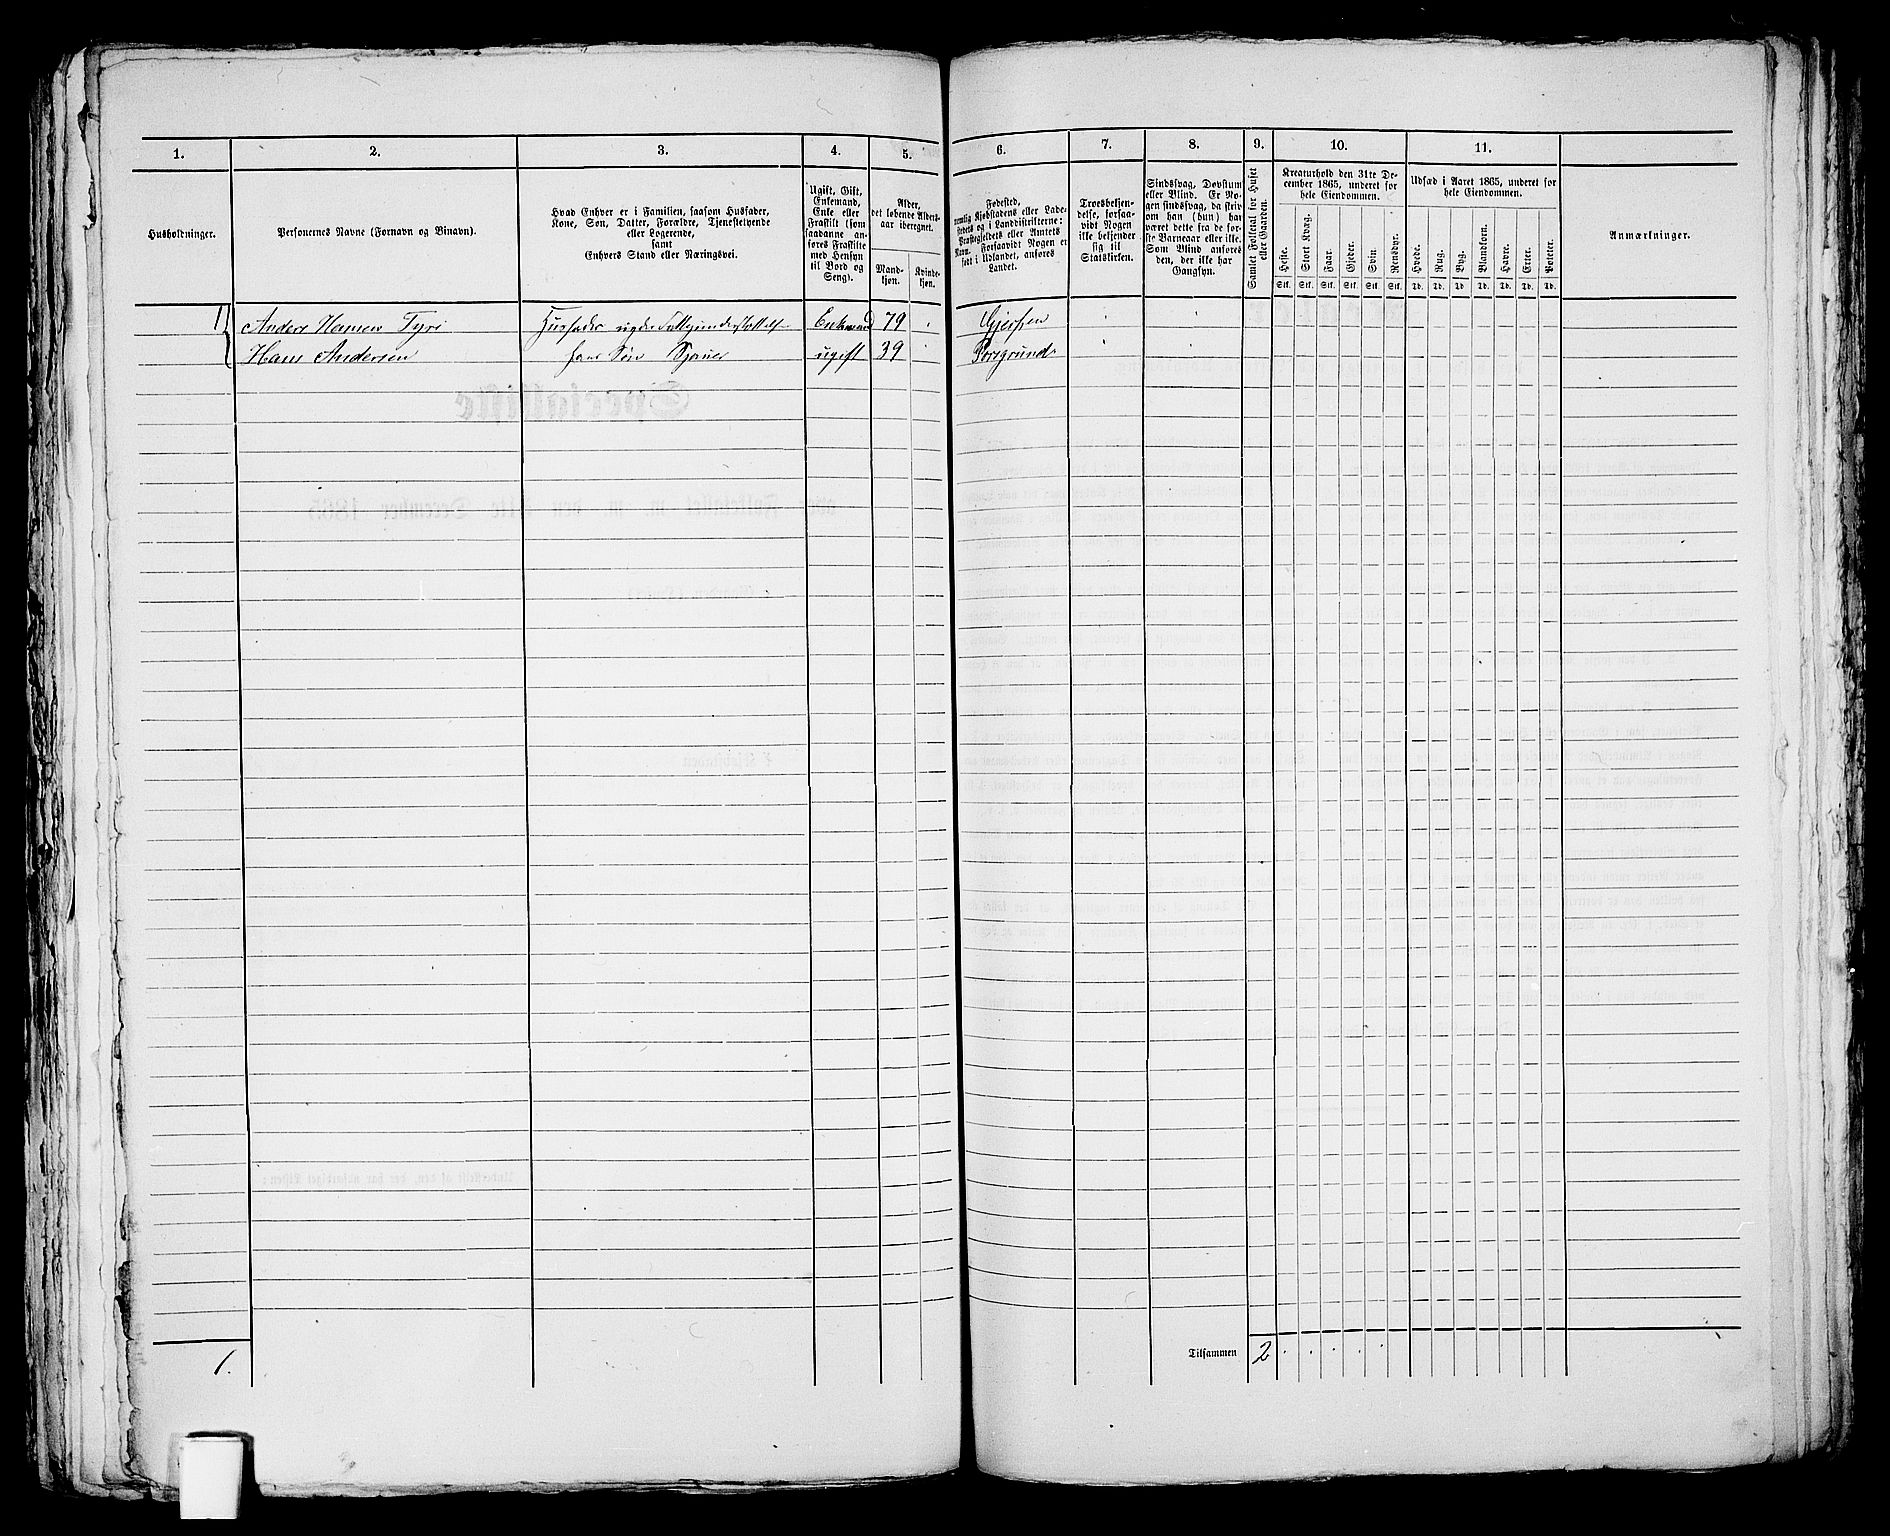 1. 2. 3. 4. 5. 6. 7. 8. 9. 10. 11.
Husholdninger.
Personernes Navne (Fornavn og Binavn).
Hvad Enhver er i Familien, saasom Husfader,
Kone, Søn, Datter, Forældre, Tjenestetyende
eller Logerende,
samt
Enhvers Stand eller Næringsvei.
Ugift, Gift,
Enkemand,
Enke eller
Fraskilt (som
saadanne an-
føres Fraskilte
med Hensyn
til Bord og
Seng).
Alder,
det løbende Alders-
aar iberegnet.
Mand-
kjøn.
Kvinde-
kjøn.
Fødested,
nemlig Kjøbstadens eller Lade-
stedets og i Landdistrikterne:
Præstegjeldets eller Amtets
Navn. Forsaavidt Nogen er
født i Udlandet, anføres
Landet.
Troesbekjen-
delse, forsaa-
vidt Nogen
ikke bekjender
sig til
Statskirken.
Sindssvag, Døvstum
eller Blind. Er No-
gen sindssvag, da skriv
om han (hun) har
været dette fra de for-
ste Barneaar eller ikke.
Som Blind anføres
den, der ikke har
Gangsyn.
Samlet Folketal for Huset
eller Gaarden.
Kreaturhold den 31te De-
cember 1865, underet for
hele Eiendommen.
Heste. Stort Kvæg. Faar. Gjeder. Svin. Rensdyr.
Stk. Stk. Stk. Stk. Stk. Stk.
Udsæd i Aaret 1865, underet for
hele Eiendommen.
Hvede. Rug. Byg. Blandkorn. Havre. Erter. Poteter.
Td. Td. Td. Td. Td. Td. Td.
Anmærkninger.
1 Anders Hansen Tyri Husfader Enkmand 79 Gjerpen
Hans Andersen hans Søn ugift 39 Porsgrund
1. Tilsammen 2